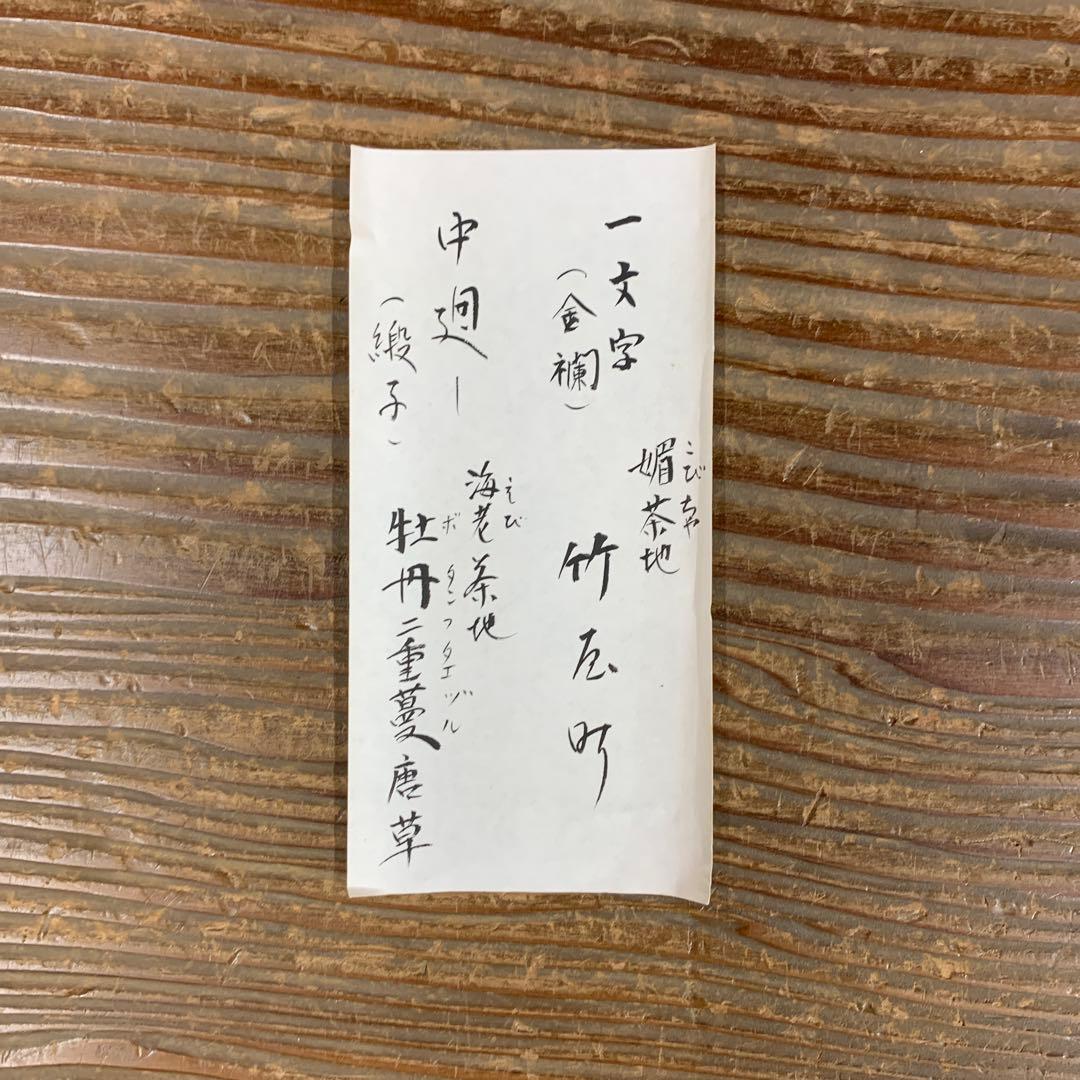 一文字
(金襴)
こびちゃ
媚茶地
竹屋町
中廻し
(緞子)
えび
海老茶地
ボタンフタエヅル
牡丹二重蔓唐草